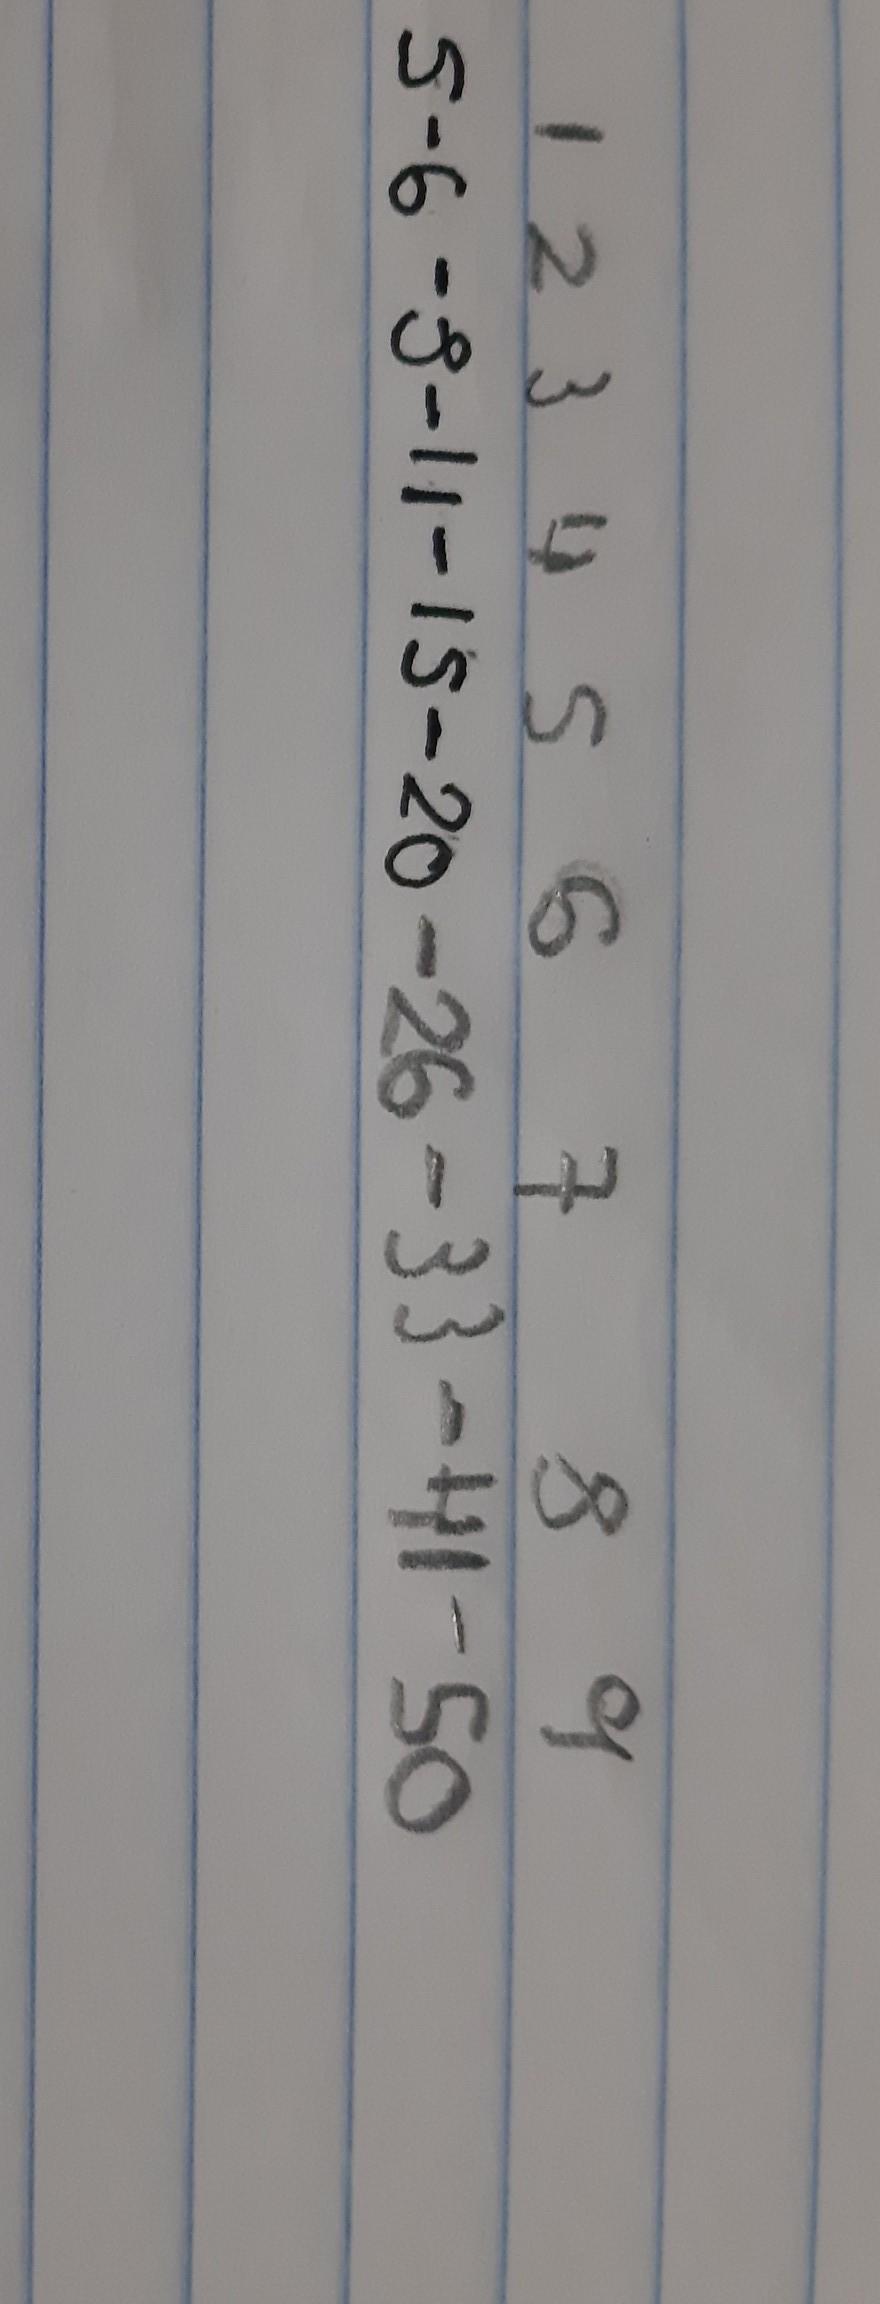 1 2 3 4 5 6 7 8 9
5-6-8-11-15-20-26-33-41-50